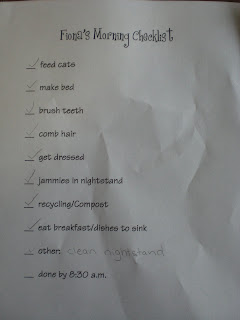 Fiona's Morning Checklist
feed cats
make bed
brush teeth
comb hair
get dressed
jammies in nightstand
recycling/Compost
eat breakfast/dishes to sink
other: clean nightstand
done by 8:30 a.m.